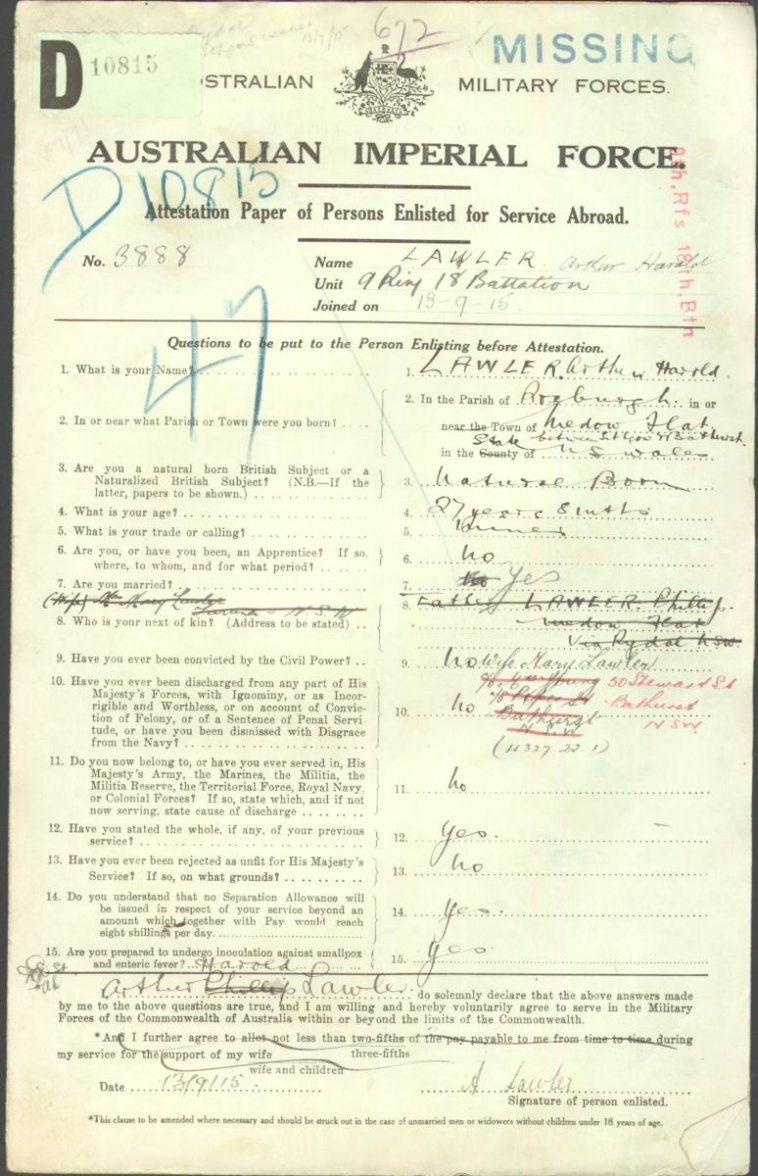 Rydal
13/9/15
672
MISSING
D 10815
AUSTRALIAN MILITARY FORCES.
AUSTRALIAN IMPERIAL FORCE.
D10815
9th, Rfs 18th, Btn
Attestation Paper of Persons Enlisted for Service Abroad.
No. 3888
Name LAWLER Arthur Harold
Unit 9 Rinf 18 Battation
Joined on 13-9-15.
47
Questions to be put to the Person Enlisting before Attestation.
1. What is your Name? 1. LAWLER. Arthur Harold.
2. In or near what Parish or Town were you born? 2. In the Parish of Roxburgh in or
near the Town of Medow Flat
State between Lithgow & Bathurst
in the County of N S Wales
3. Are you a natural born British Subject or a
Naturalized British Subject? (N.B.—If the
latter, papers to be shown.) 3. Natural Born
4. What is your age? 4. 27 years 8 mths
5. What is your trade or calling? 5. Miner
6. Are you, or have you been, an Apprentice? If so,
where, to whom, and for what period? 6. no
7. Are you married? 7. No Yes
(Wife) Mrs Mary Lawler
N.S.W
8. Who is your next of kin? (Address to be stated) 8. Father LAWLER Phillip.
Medow Flat
Via Rydal NSW
9. Have you ever been convicted by the Civil Power? 9. no Wife Mary Lawler
50 Steward St
Bathurst
N S W.
10. Have you ever been discharged from any part of His
Majesty's Forces, with Ignominy, or as Incor-
rigible and Worthless, or on account of Convic-
tion of Felony, or of a Sentence of Penal Servi-
tude, or have you been dismissed with Disgrace
from the Navy? 10. no
Bathurst
N.S.W
(11337 22.1)
11. Do you now belong to, or have you ever served in, His
Majesty's Army, the Marines, the Militia, the
Militia Reserve, the Territorial Force, Royal Navy,
or Colonial Forces? If so, state which, and if not
now serving, state cause of discharge 11. no
12. Have you stated the whole, if any, of your previous
service? 12. Yes.
13. Have you ever been rejected as unfit for His Majesty's
Service? If so, on what grounds? 13. no
14. Do you understand that no Separation Allowance will
be issued in respect of your service beyond an
amount which together with Pay would reach
eight shillings per day. 14. Yes.
15. Are you prepared to undergo inoculation against smallpox
and enteric fever? 15. Yes
Harold
Arthur Phillip Lawler do solemnly declare that the above answers made
by me to the above questions are true, and I am willing and hereby voluntarily agree to serve in the Military
Forces of the Commonwealth of Australia within or beyond the limits of the Commonwealth.
*And I further agree to allot not less than two-fifths of the pay payable to me from time to time during
three-fifths
my service for the support of my wife
wife and children
Date 13/9/15. A Lawler
Signature of person enlisted.
*This clause to be amended where necessary and should be struck out in the case of unmarried men or widowers without children under 18 years of age.